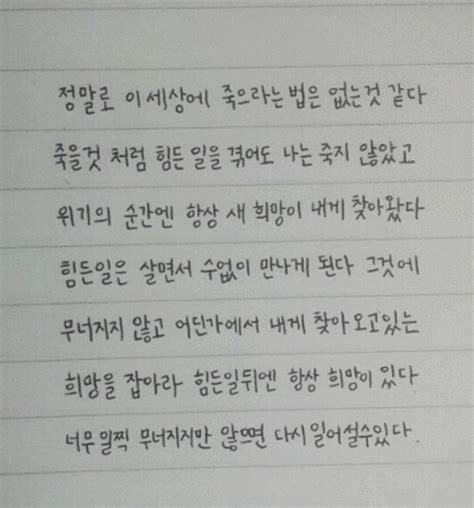 정말로 이 세상에 죽으라는 법은 없는것 같다
죽을것 처럼 힘든 일을 겪어도 나는 죽지 않았고
위기의 순간엔 항상 새 희망이 내게 찾아왔다
힘든일은 살면서 수없이 만나게 된다 그것에
무너지지 않고 어딘가에서 내게 찾아 오고있는
희망을 잡아라 힘든일뒤엔 항상 희망이 있다
너무 일찍 무너지지만 않으면 다시 일어설수있다.